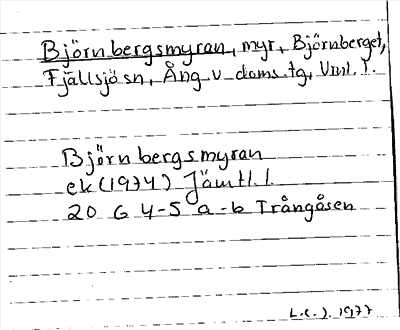 Björnbergsmyran, myr, Björnberget,
Fjällsjö sn, Ång. v. doms. tg, Vnl. l.
Björnbergsmyran
ek (1974) Jämtl. l.
20 G 4-5 a-b Trångåsen
L.C.J. 1977